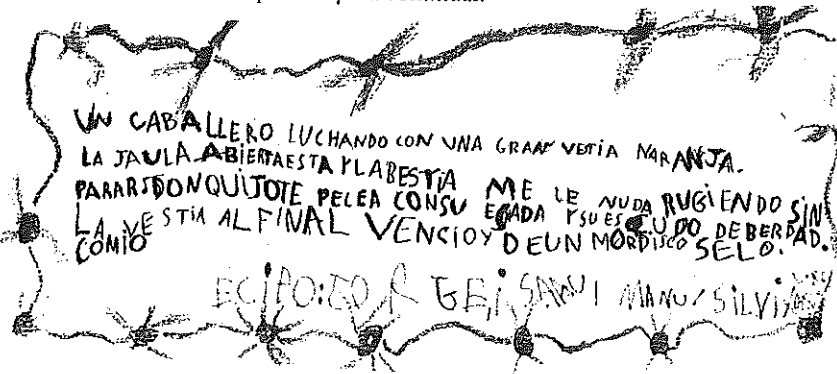 UN CABALLERO LUCHANDO CON UNA GRAN VETIA NARANJA.
LA JAULA ABIERTA ESTA Y LA BESTIA MELENUDA RUGIENDO SIN
PARAR. DON QUIJOTE PELEA CON SU EGADA Y SU ESCUDO DE BERDAD.
LA VESTIA AL FINAL VENCIO Y DE UN MORDISCO SE LO.
COMIO
ECIPO: MANU SILVI